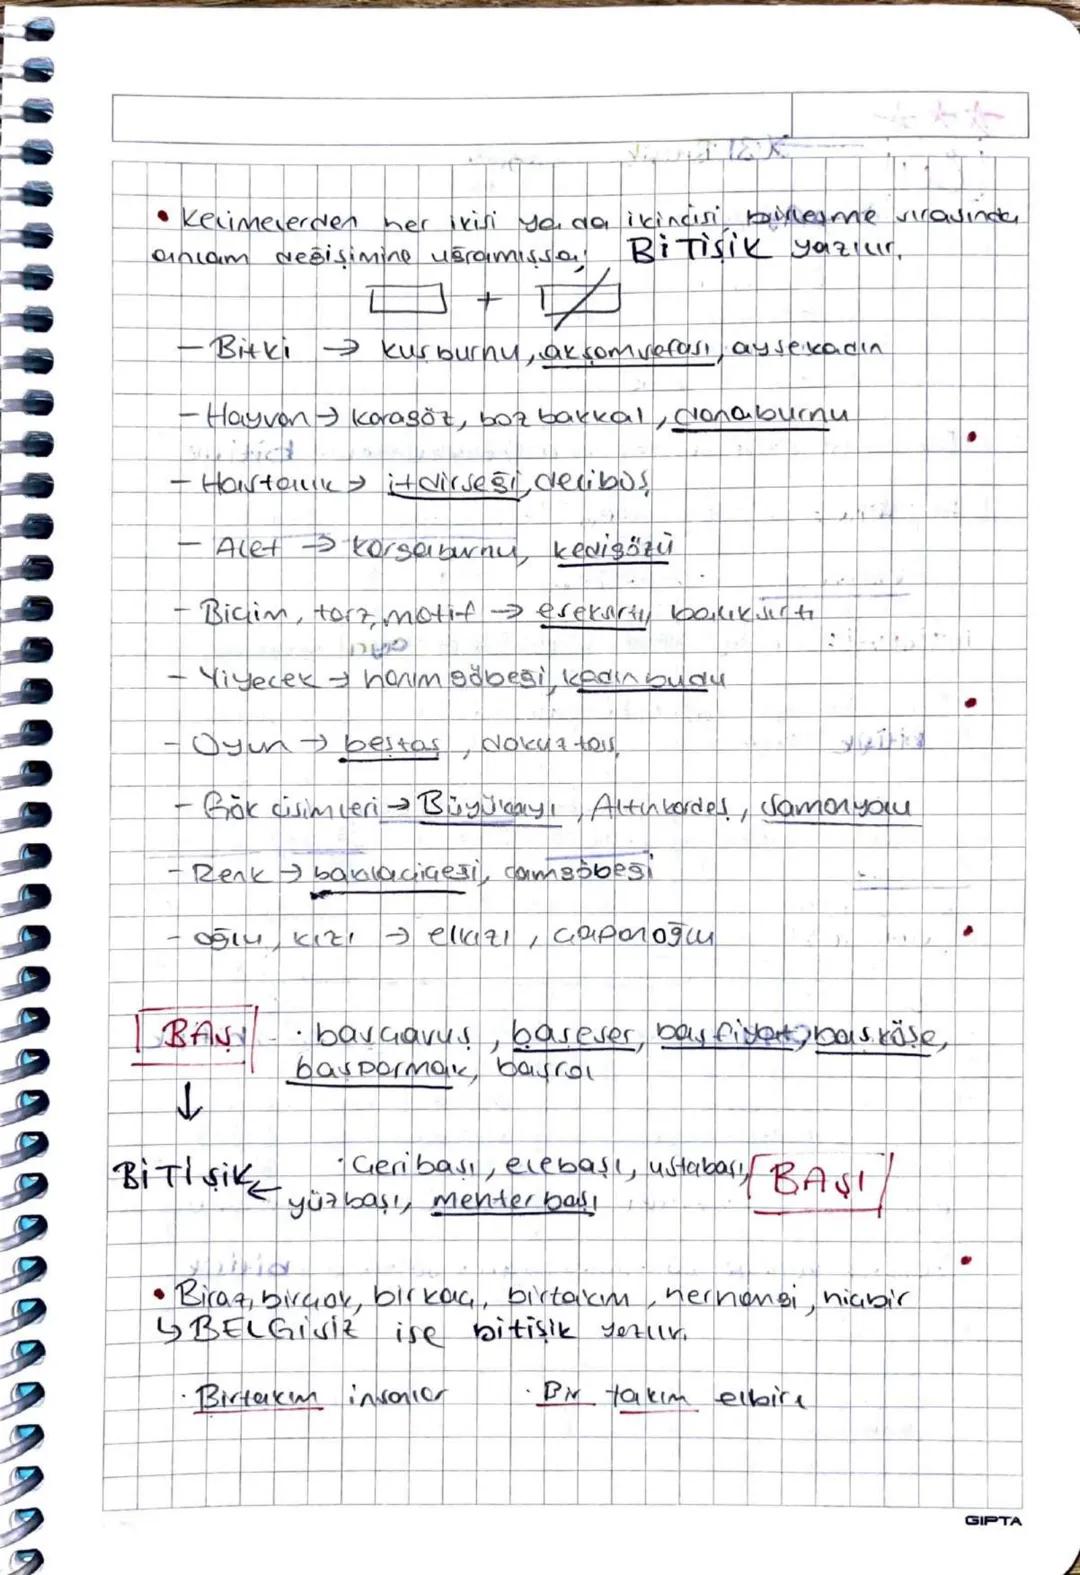 • Kelimelerden her ikisi ya da ikincisi, birleşme sırasında
anlam değişimine uğramışsa; BİTİŞİK yazılır.
+
- Bitki → kuşburnu, akşamsefası, ayşekadın
- Hayvan → karagöz, bozbakkal, danaburnu
- Hastalık → itdirseği, delibaş
- Alet → kargaburnu, kedigözü
- Biçim, tarz, motif → eşeksırtı, balıksırtı
- Yiyecek → hanımgöbeği, kadınbudu
- Oyun → beştaş, dokuztaş
- Gök cisimleri → Büyükayı, Altınkardeş, Samanyolu
- Renk → baklaçiçeği, camgöbeği
- oğlu, kızı → elkızı, çapanoğlu
BAŞ · başçavuş, başeser, başfiyat, başköşe,
başparmak, başrol
↓
BİTİŞİK ← · Çeribaşı, elebaşı, ustabaşı, BAŞI
yüzbaşı, mehterbaşı
• Biraz, birçok, birkaç, birtakım, herhangi, hiçbir
↳ BELGİSİZ ise bitişik yazılır.
· Birtakım insanlar · Bir takım elbise
GIPTA